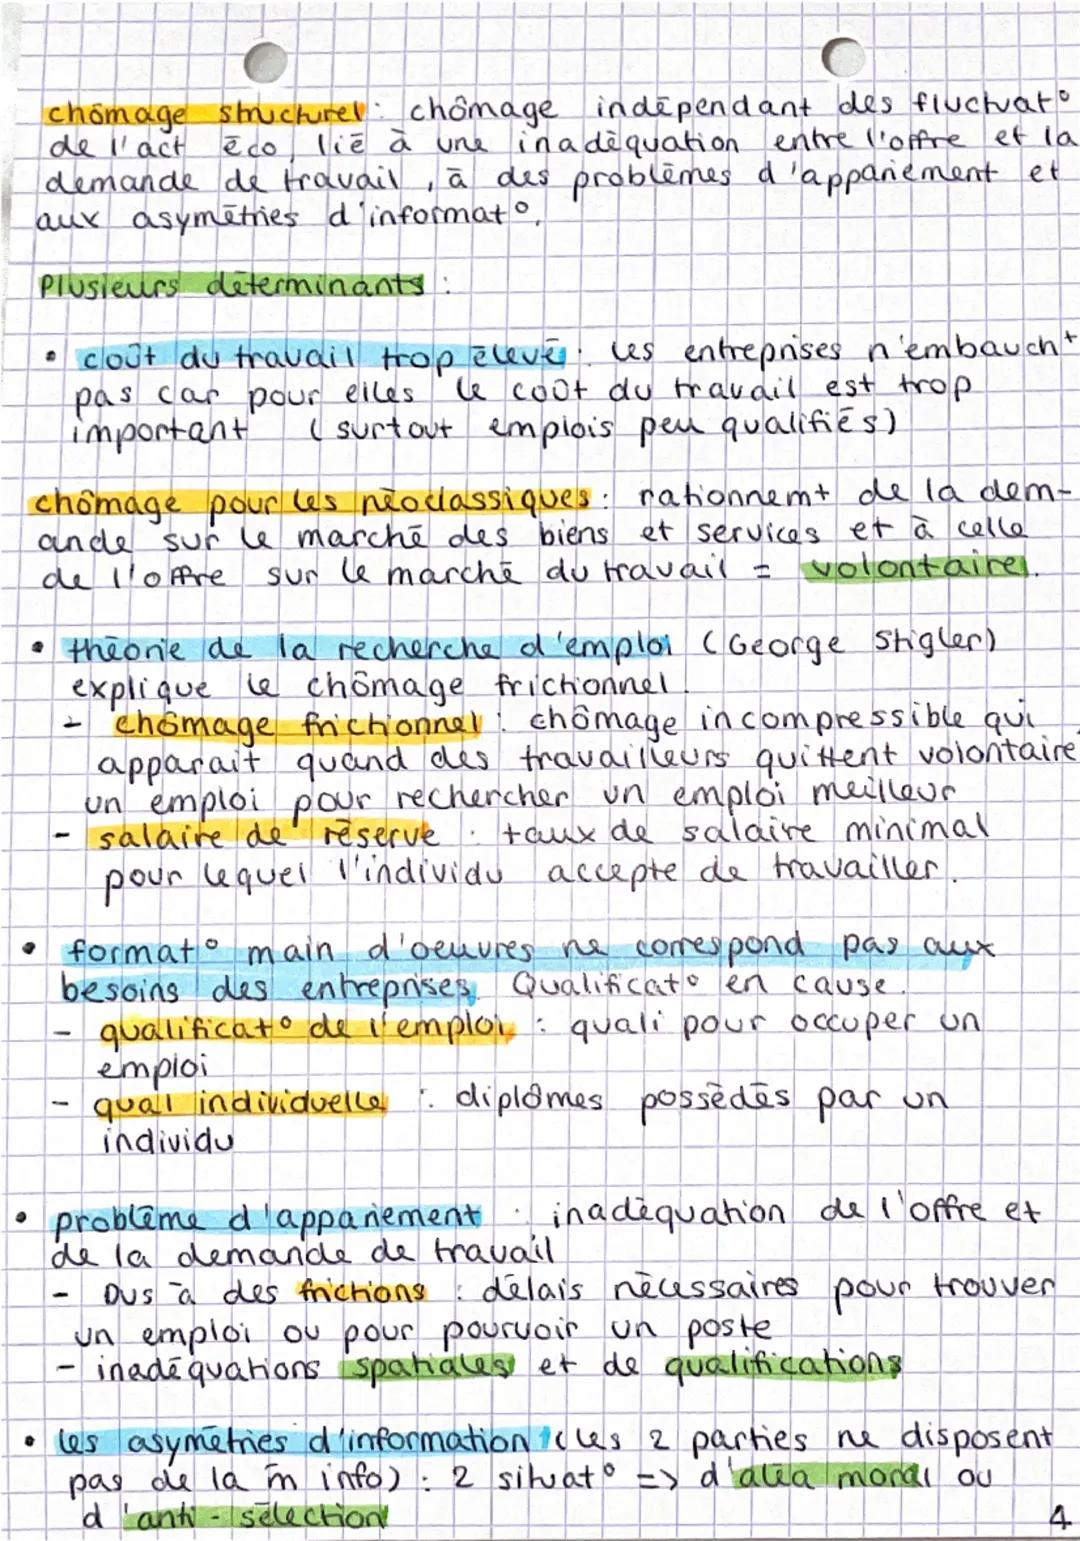 chômage structurel : chômage indépendant des fluctuat°
de l'act éco, lié à une inadéquation entre l'offre et la
demande de travail, à des problèmes d'appariement et
aux asymétries d'informat°.
Plusieurs déterminants :
• coût du travail trop élevé : les entreprises n'embauch+
pas car pour elles le coût du travail est trop
important (surtout emplois peu qualifiés)
chômage pour les néoclassiques : rationnem+ de la dem-
ande sur le marché des biens et services et à celle
de l'offre sur le marché du travail = volontaire.
• théorie de la recherche d'emploi (George Stigler)
explique le chômage frictionnel.
- chômage frictionnel : chômage incompressible qui
apparait quand des travailleurs quittent volontaire
un emploi pour rechercher un emploi meilleur
- salaire de réserve : taux de salaire minimal
pour lequel l'individu accepte de travailler.
• format° main d'oeuvres ne correspond pas aux
besoins des entreprises. Qualificat° en cause.
- qualificat° de l'emploi : quali pour occuper un
emploi
- qual individuelle : diplômes possédés par un
individu
• problème d'appariement : inadéquation de l'offre et
de la demande de travail
- Dus à des frictions : délais nécessaires pour trouver
un emploi ou pour pourvoir un poste
- inadéquations spatiales et de qualifications
• les asymétries d'information (les 2 parties ne disposent
pas de la m̂ info) : 2 situat° => d'aléa moral ou
d'anti-sélection
4